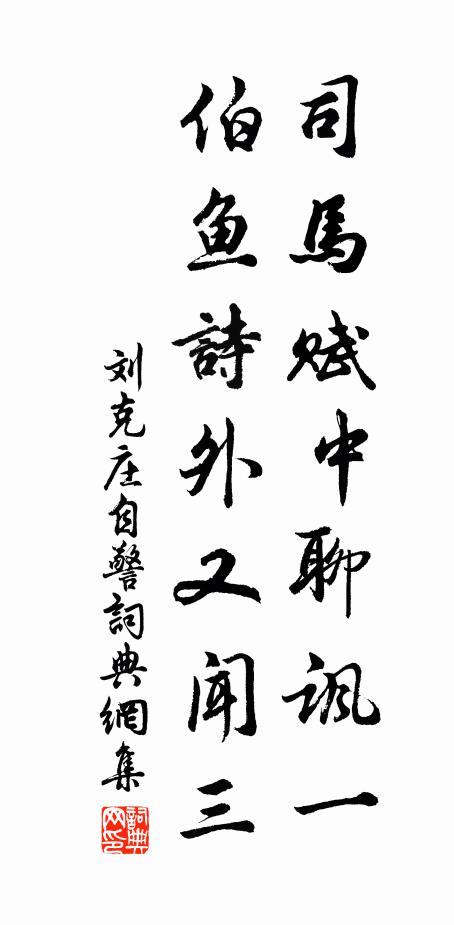 司馬赋中聊諷一
伯鱼詩外又聞三
刘克庄自警詞典網集
詞典网印